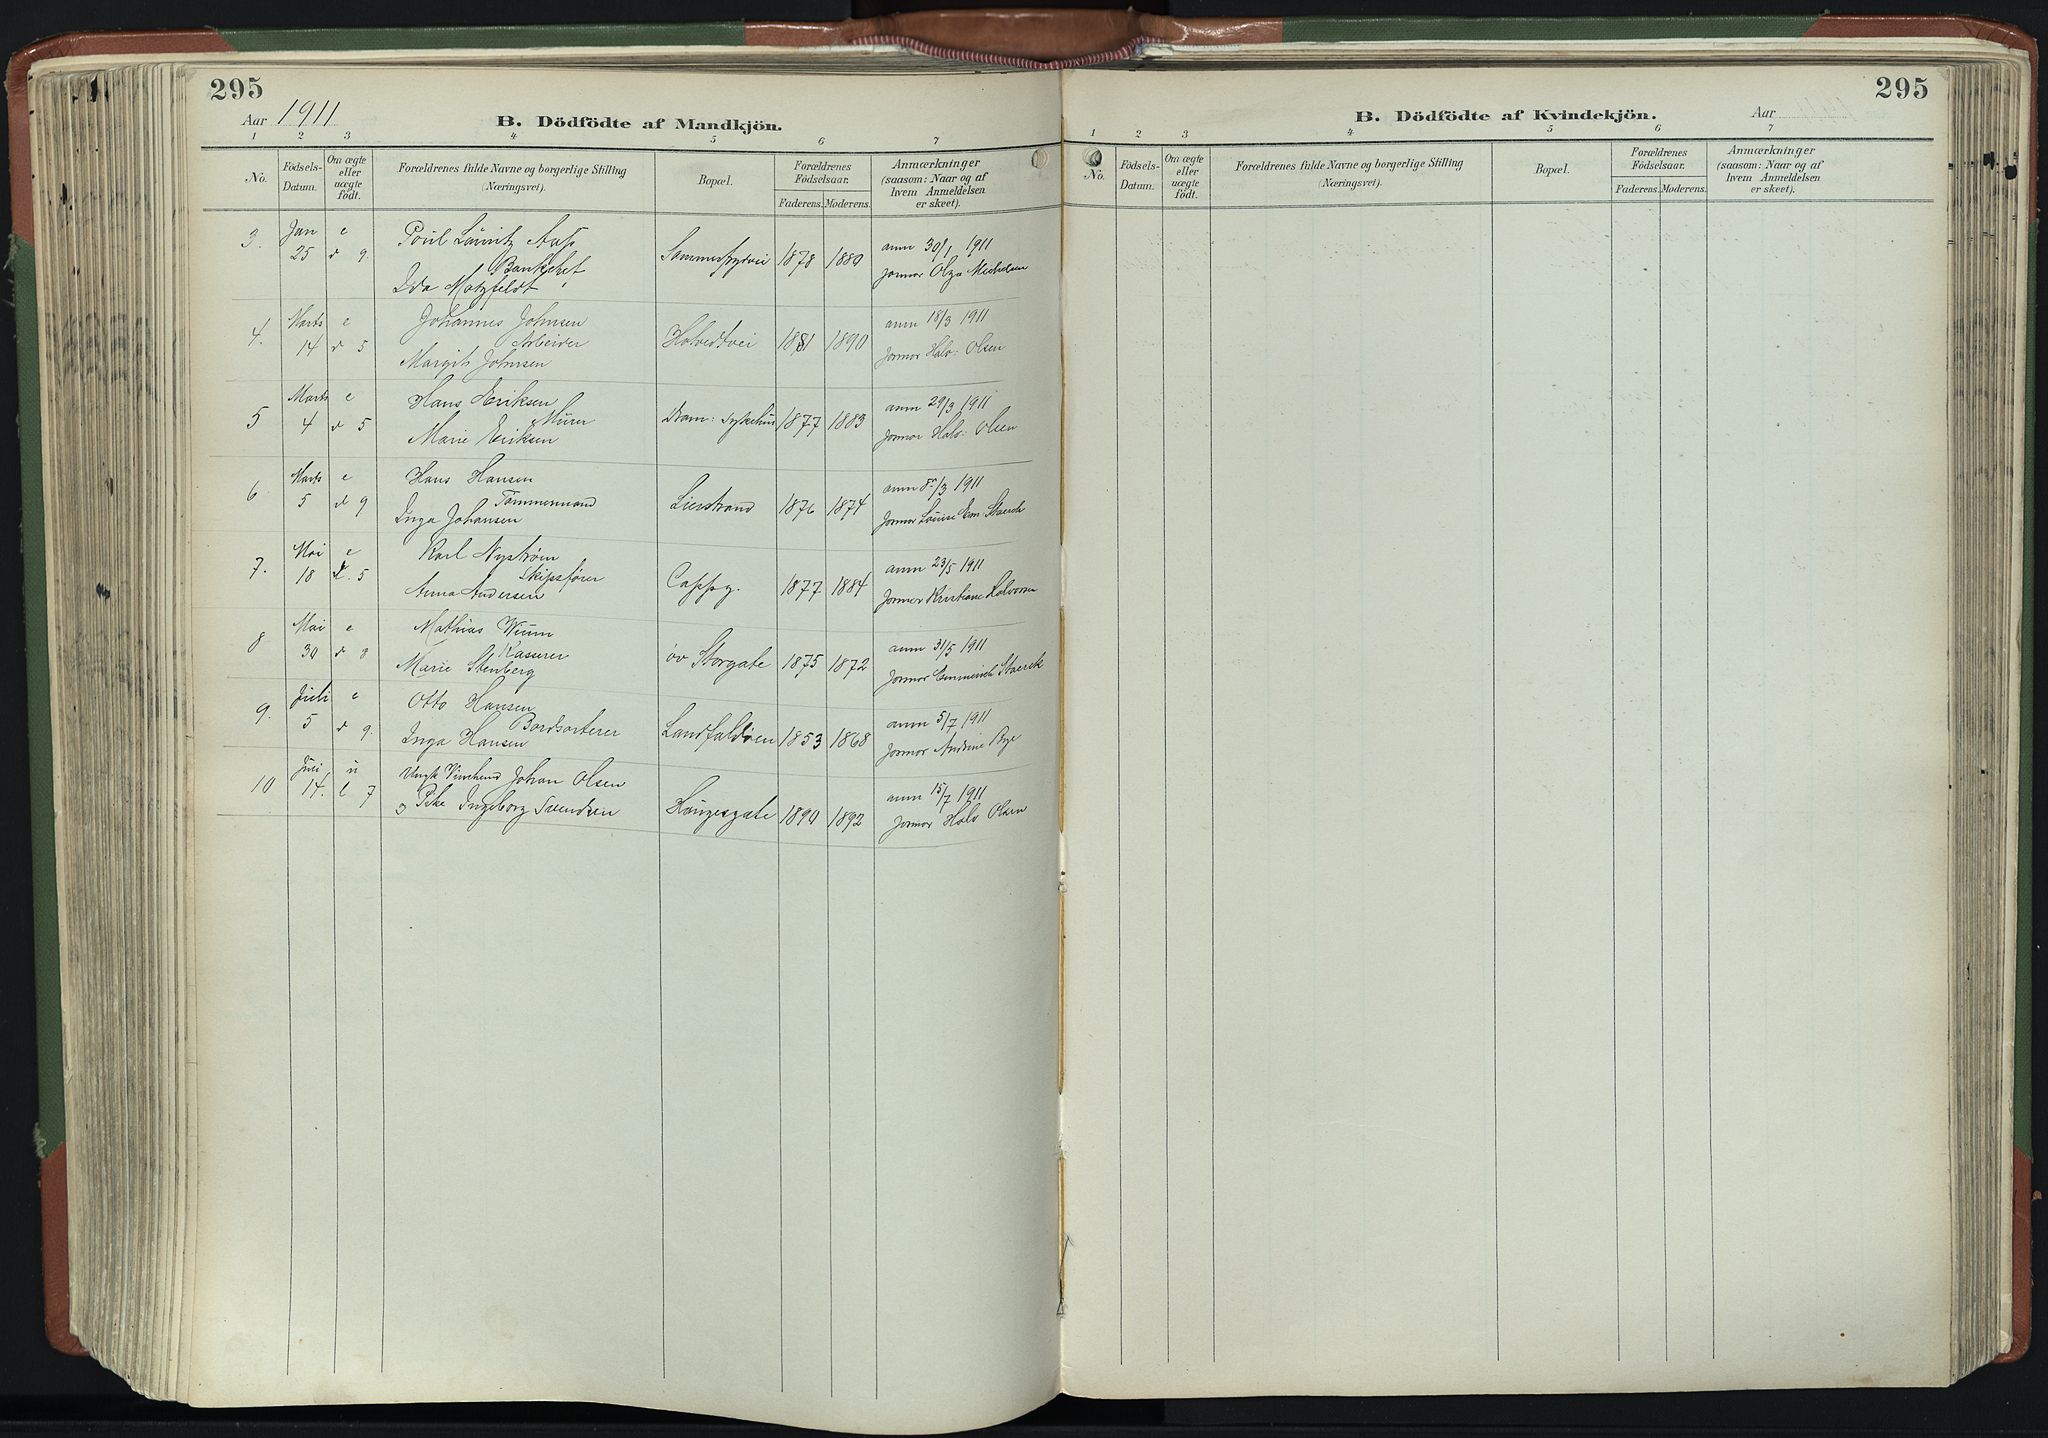 295
Aar 1911
B. Dödfödte af Mandkjön.
1 2 3 4 5 6 7
No.
Födsels-Datum.
Om ægte eller uægte födt.
Forældrenes fulde Navne og borgerlige Stilling (Næringsvei).
Bopæl.
Forældrenes Födselsaar.
Faderens. Moderens.
Anmærkninger (saasom: Naar og af hvem Anmeldelsen er skeet).
3. Jan 25 e d 9. Poul Lauritz Aass
Ida Motzfeldt 1878 1880 anm 30/1 1911
Jormor Olga Michelsen
4. Marts 14 e d 5 Johannes Johnsen
Arbeider
Margit Johnsen Hotvedtvei 1881 1890 anm 18/3 1911
Jormor Halv: Olsen
5 Marts 4 e d 5 Hans Eriksen
Murer
Marie Eriksen Dram: sykehus 1877 1883 anm 29/3 1911
Jormor Halv: Olsen
6 Marts 5 e d 9 Hans Hansen
Tømmermand
Inga Johansen Lierstrand 1876 1874 anm 8/3 1911
Jormor Louise Em: Staerck
7. Mai 18 e d. 5 Karl Nystrøm
Skipsfører
Anna Andersen Cappg. 1877 1884 anm 23/5 1911
Jormor Kristiane Halvorsen
8 Mai 30 e d 8 Mathias Wium
Kasserer
Marie Stenberg øv Storgate 1875 1872 anm 31/5 1911
Jormor Emmerich Staerck
9. Juli 5 e d 9. Otto Hansen
Bordsorterer
Inga Hansen Landfaldøen 1853 1868 anm 5/7 1911
Jormor Andrine Bye
10 Juli 14. u l 7 Ungk Johan Olsen
o Pike Ingeborg Svendsen Haugesgate 1890 1892 anm 15/7 1911
Jormor Halv Olsen
295
Aar
B. Dödfödte af Kvindekjön.
1 2 3 4 5 6 7
No.
Födsels-Datum.
Om ægte eller uægte födt.
Forældrenes fulde Navne og borgerlige Stilling (Næringsvei).
Bopæl.
Forældrenes Födselsaar.
Faderens. Moderens.
Anmærkninger (saasom: Naar og af hvem Anmeldelsen er skeet).